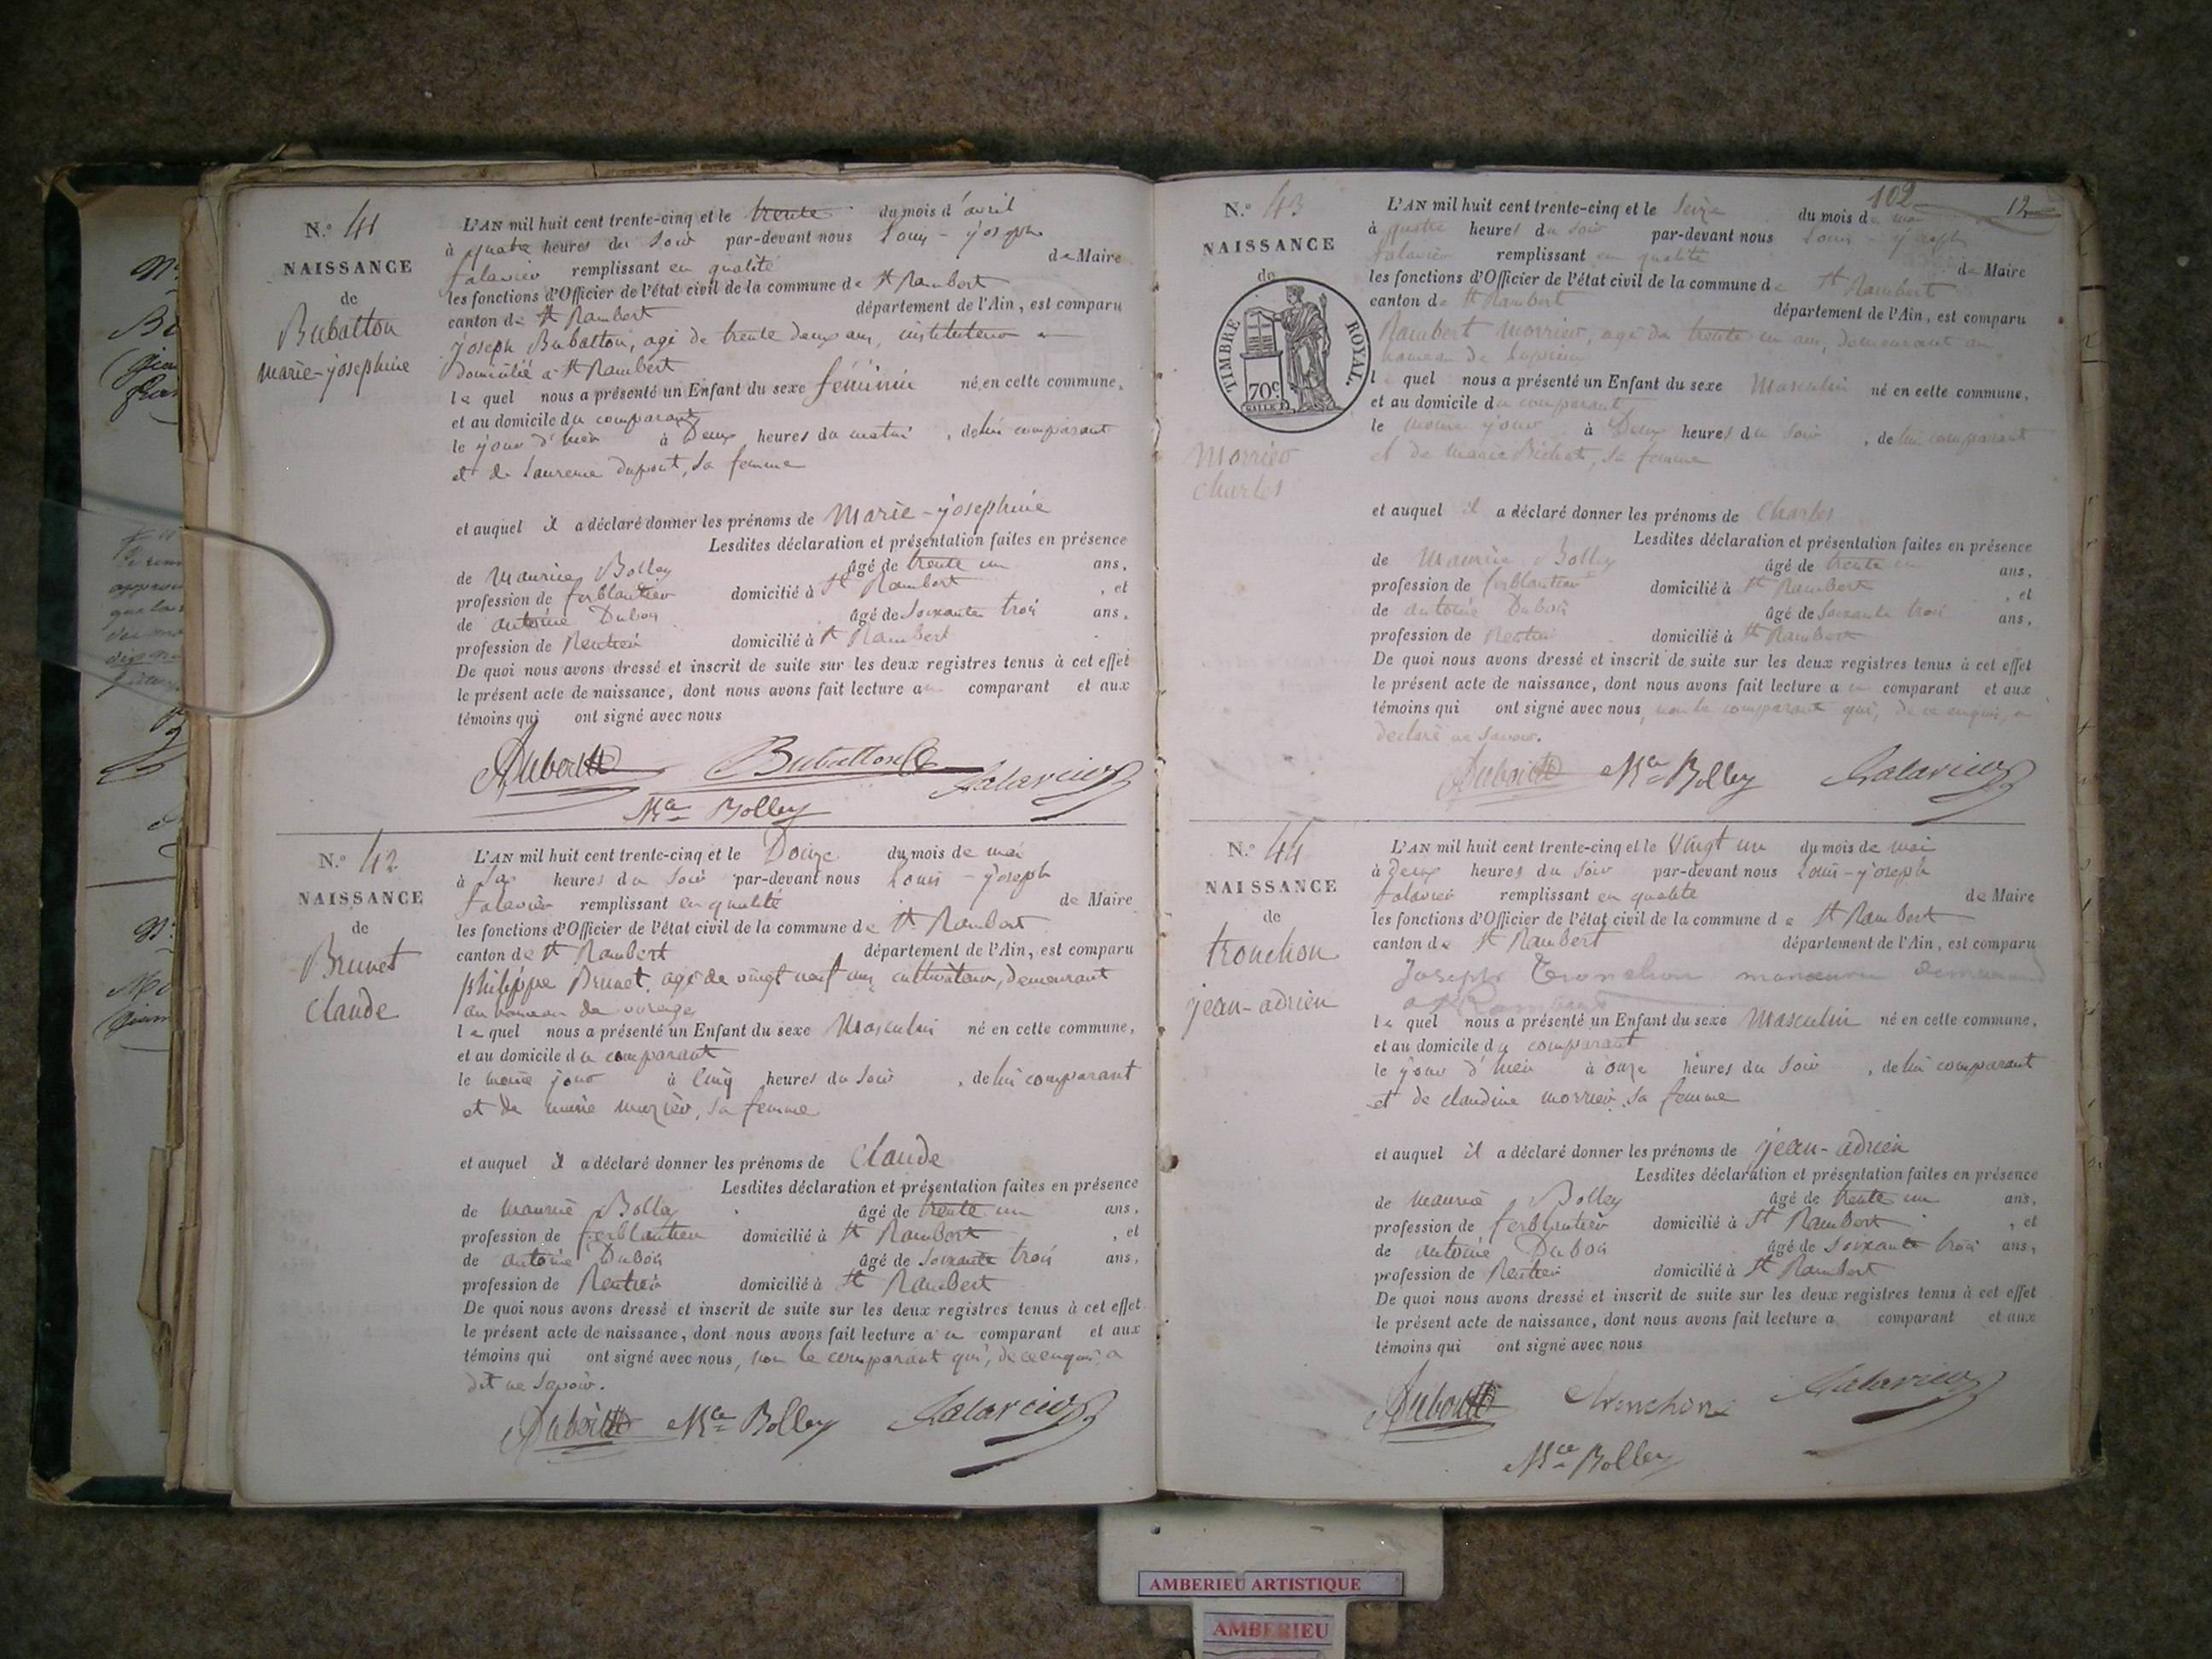 N.º 41
NAISSANCE
de
Bubatton
marie-josephine
L'AN mil huit cent trente-cinq et le trente du mois d'avril
à quatre heures du soir par-devant nous Louis-joseph
falavier remplissant en qualité de Maire
les fonctions d'Officier de l'état civil de la commune de St Rambert
canton de St Rambert département de l'Ain, est comparu
joseph Bubatton, agé de trente deux ans, instituteur
domicilié à St Rambert
lequel nous a présenté un Enfant du sexe féminin né en cette commune,
et au domicile du comparant
le jour d'hier à Deux heures du matin, de lui comparant
et de Laurence dupont, sa femme
et auquel il a déclaré donner les prénoms de Marie-josephine
Lesdites déclaration et présentation faites en présence
de Maurice Bolley âgé de trente un ans,
profession de ferblantier domicilié à St Rambert, et
de antoine Dubois âgé de Soixante trois ans,
profession de Rentier domicilié à St Rambert
De quoi nous avons dressé et inscrit de suite sur les deux registres tenus à cet effet
le présent acte de naissance, dont nous avons fait lecture au comparant et aux
témoins qui ont signé avec nous
Bubatton
Mce Bolley
N.º 42
NAISSANCE
de
Brunet
Claude
L'AN mil huit cent trente-cinq et le Douze du mois de mai
à heures du soir par-devant nous Louis-joseph
falavier remplissant en qualité de Maire
les fonctions d'Officier de l'état civil de la commune de St Rambert
canton de St Rambert département de l'Ain, est comparu
philippe Brunet, agé de vingt neuf ans, cultivateur, demeurant
au hameau de
lequel nous a présenté un Enfant du sexe Masculin né en cette commune,
et au domicile du comparant
le meme jour à Cinq heures du soir, de lui comparant
et de marie, sa femme
et auquel il a déclaré donner les prénoms de Claude
Lesdites déclaration et présentation faites en présence
de Maurice Bolley âgé de trente un ans,
profession de ferblantier domicilié à St Rambert, et
de antoine Dubois âgé de Soixante trois ans,
profession de Rentier domicilié à St Rambert
De quoi nous avons dressé et inscrit de suite sur les deux registres tenus à cet effet
le présent acte de naissance, dont nous avons fait lecture au comparant et aux
témoins qui ont signé avec nous, non le comparant qui, de ce enquis, a
dit ne Savoir.
Mce Bolley
102
12
N.º 43
NAISSANCE
de
TIMBRE ROYAL.
70c
Morrier
Charles
L'AN mil huit cent trente-cinq et le Seize du mois de mai
à quatre heures du soir par-devant nous Louis-joseph
falavier remplissant en qualité de Maire
les fonctions d'Officier de l'état civil de la commune de St Rambert
canton de St Rambert département de l'Ain, est comparu
Rambert Morrier, agé de trente un ans, demeurant au
hameau de
lequel nous a présenté un Enfant du sexe Masculin né en cette commune,
et au domicile du comparant
le meme jour à Deux heures du soir, de lui comparant
et de Marie Bichat, sa femme
et auquel il a déclaré donner les prénoms de Charles
Lesdites déclaration et présentation faites en présence
de Maurice Bolley âgé de trente un ans,
profession de ferblantier domicilié à St Rambert, et
de antoine Dubois âgé de Soixante trois ans,
profession de Rentier domicilié à St Rambert
De quoi nous avons dressé et inscrit de suite sur les deux registres tenus à cet effet
le présent acte de naissance, dont nous avons fait lecture au comparant et aux
témoins qui ont signé avec nous, non le comparant qui, de ce enquis, a
déclaré ne Savoir.
Mce Bolley
N.º 44
NAISSANCE
de
tronchon
jean-adrien
L'AN mil huit cent trente-cinq et le Vingt un du mois de mai
à Deux heures du soir par-devant nous Louis-joseph
falavier remplissant en qualité de Maire
les fonctions d'Officier de l'état civil de la commune de St Rambert
canton de St Rambert département de l'Ain, est comparu
Joseph Tronchon manoeuvre demeurant
a St Rambert
lequel nous a présenté un Enfant du sexe Masculin né en cette commune,
et au domicile du comparant
le jour d'hier à onze heures du soir, de lui comparant
et de claudine morrier, sa femme
et auquel il a déclaré donner les prénoms de jean-adrien
Lesdites déclaration et présentation faites en présence
de Maurice Bolley âgé de trente un ans,
profession de ferblantier domicilié à St Rambert, et
de antoine Dubois âgé de Soixante trois ans,
profession de Rentier domicilié à St Rambert
De quoi nous avons dressé et inscrit de suite sur les deux registres tenus à cet effet
le présent acte de naissance, dont nous avons fait lecture a comparant et aux
témoins qui ont signé avec nous
Tronchon
Mce Bolley
AMBERIEU ARTISTIQUE
AMBERIEU